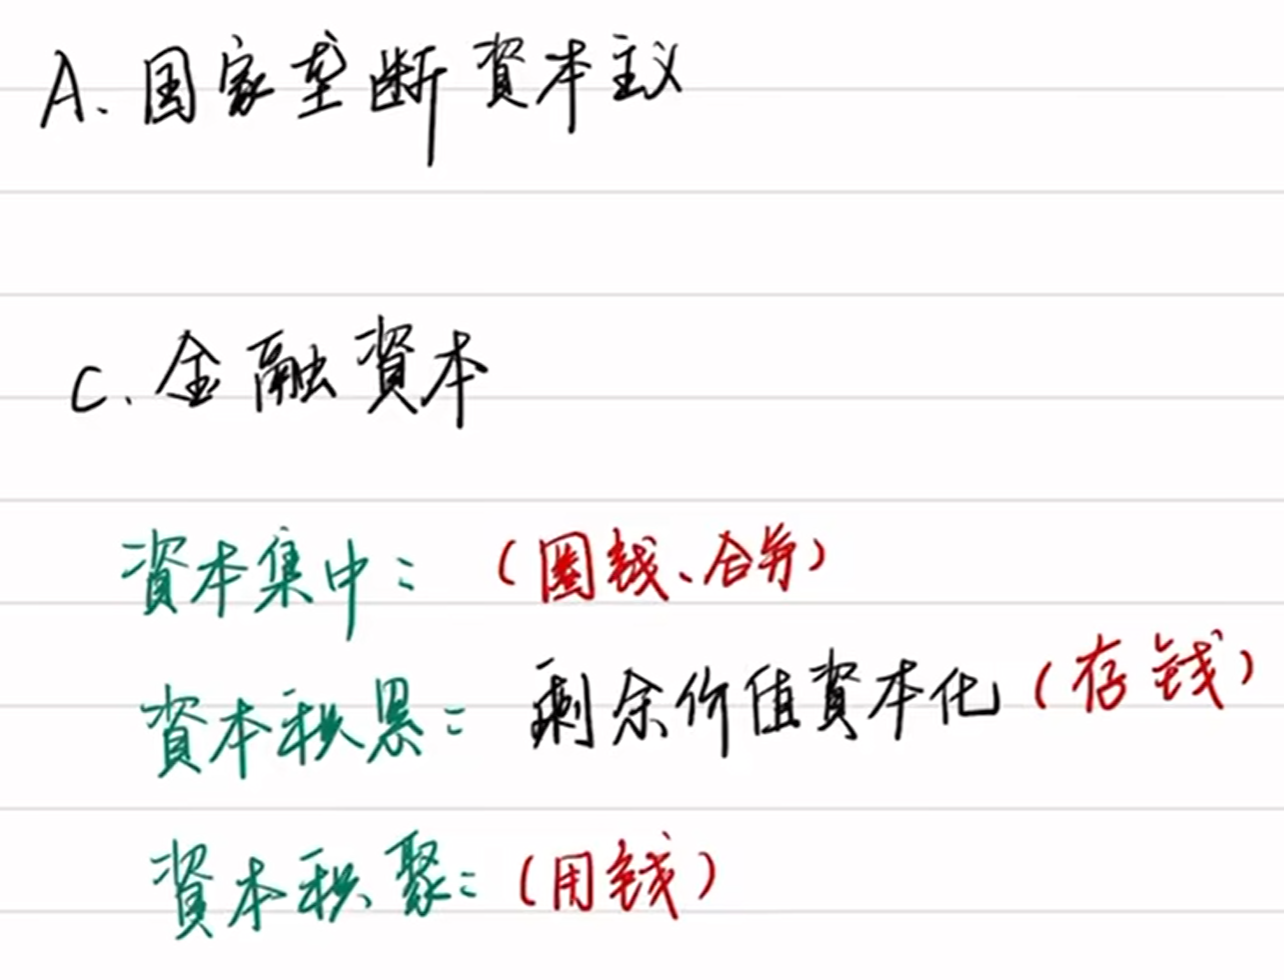 A. 国家垄断資本主义
C. 金融資本
資本集中：（圈钱、合并）
資本积累：剩余价值資本化（存钱）
資本积聚：（用钱）